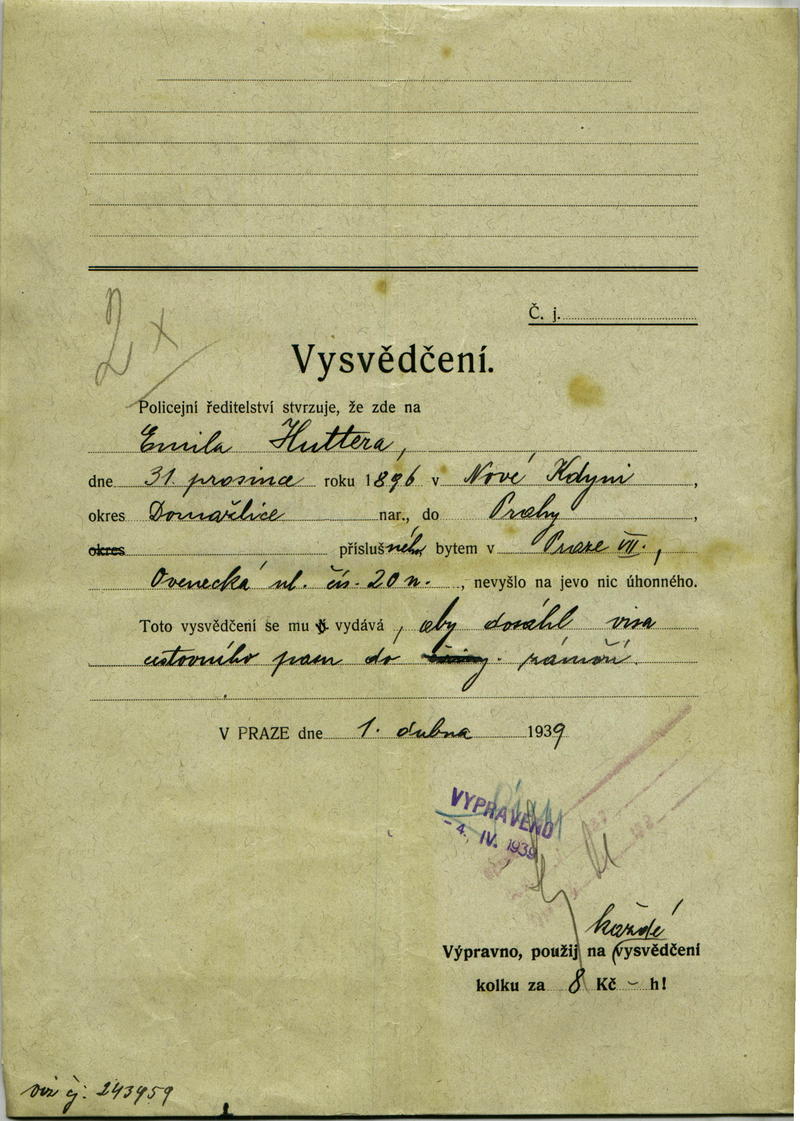 2 x
Č. j.
Vysvědčení.
Policejní ředitelství stvrzuje, že zde na
Emila Huttera,
dne 31. prosince roku 1896 v Nové Kdyni,
okres Domažlice nar., do Prahy,
okres příslušného bytem v Praze VII.,
Ovenecká ul. čís. 20 n., nevyšlo na jevo nic úhonného.
Toto vysvědčení se mu vydává, aby dosáhl visa
cestovního pasu do zámoří.
V PRAZE dne 1. dubna 1939
VYPRAVENO
- 4. IV. 1939
každé
Výpravno, použij na vysvědčení
kolku za 8 Kč - h!
viz čj: 243959